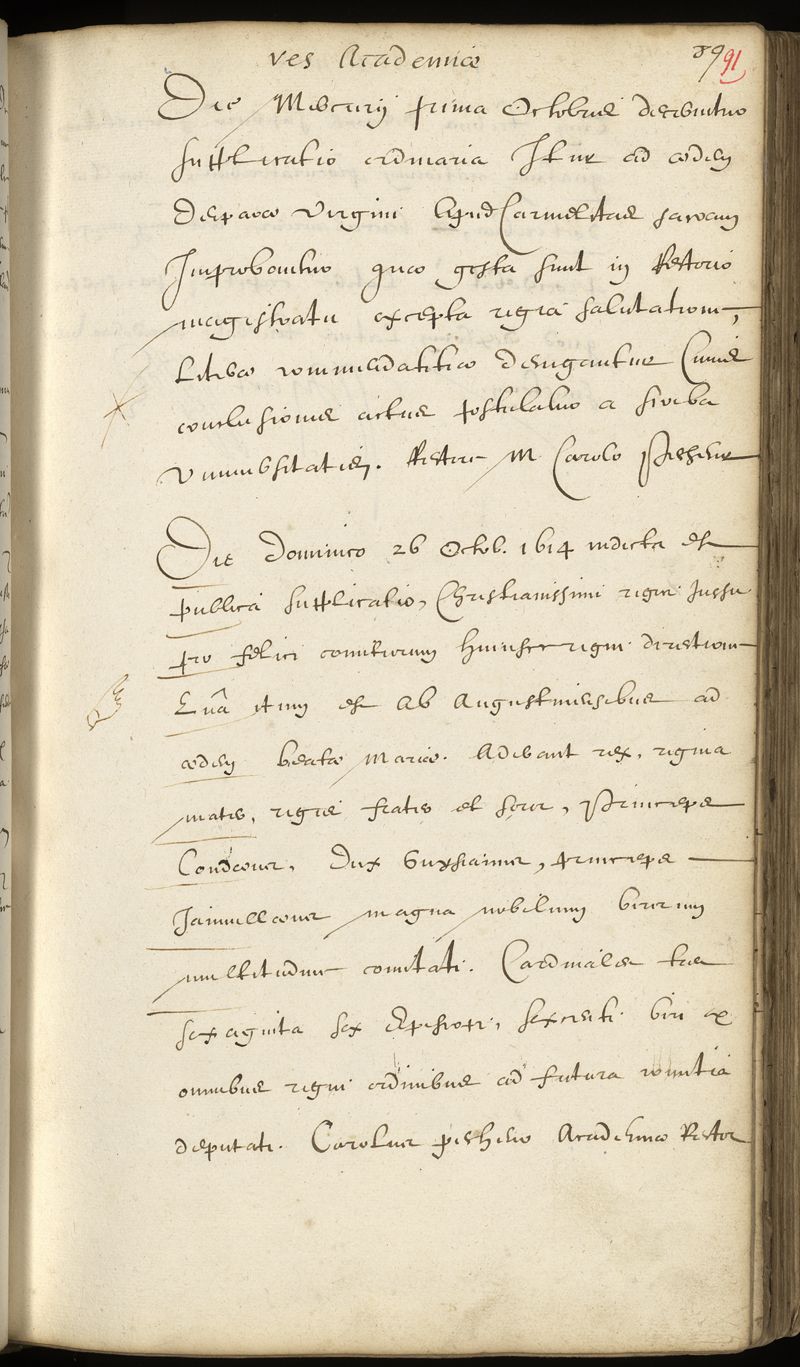 res Academiæ 89 91
Die Mercurij prima Octobris decernitur
supplicatio ordinaria Itur ad ædem
deiparæ virgini apud Carmelitas sacram
Improbantur quæ gesta sunt in Rectorio
magistratu excepta regia salutatione,
Literæ commendatitiæ denegantur
conclusionis actus postulatur a scriba
vniuersitatis. Rectore M Carolo Pescheur
Die dominico 26 Octob. 1614 indicta est
publica supplicatio, Christianissimi regis Jussu
pro felici comitiorum huiusce regni directione
Enã itum est ab Augustiniensibus ad
ædem beatæ Mariæ. Aderant rex, regina
mater, regis frater et soror, Princeps
Condæus, dux Guysianus, princeps
Jainuillæus magna nobilium virorum
multitudine comitati. Cardinales tres
sexaginta sex Episcopi, sexcenti viri ex
omnibus regni ordinibus ad futura comitia
deputati. Carolus pescheur Academiæ Rector